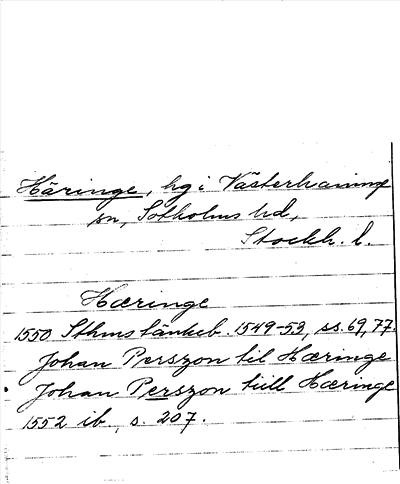 Häringe, hg i Västerhaninge
sn, Sotholms hd,
Stockh. l.
Hæringe
1550 Sthms tänkeb. 1549-53, ss. 69, 77.
Johan Perszon til Hæringe
Johan Perszon tiill Hæringe
1552 ib., s. 207.